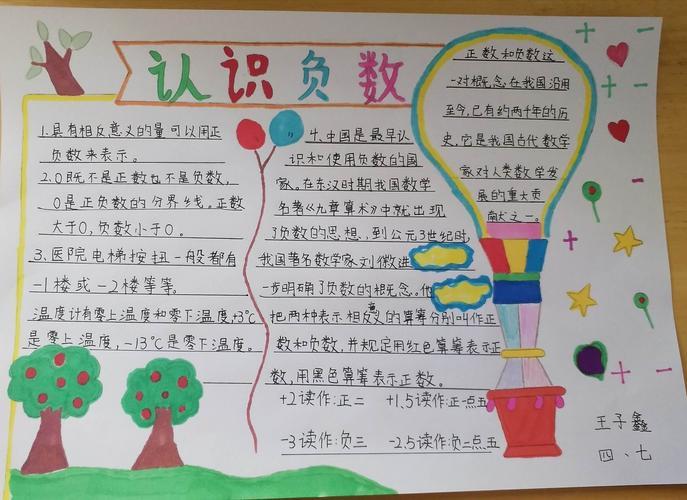 认识负数
1.具有相反意义的量可以用正
负数来表示。
2.0既不是正数也不是负数,
0是正负数的分界线。正数
大于0,负数小于0。
3、医院电梯按扭一般都有
-1楼或-2楼等等。
温度计有零上温度和零下温度,+3℃
是零上温度,-13℃是零下温度。
4.中国是最早认
识和使用负数的国
家。在东汉时期我国数学
名著《九章算术》中就出现
了负数的思想,到公元3世纪时,
我国著名数学家刘徽进
一步明确了负数的概念。他
把两种表示相反意的算筹分别叫作正
数和负数,并规定用红色算筹表示正
数,用黑色算筹表示正数。
+2读作:正二 +1.5读作:正一点五
-3读作:负三 -2.5读作:负二点五
正数和负数这
一对概念,在我国沿用
至今,已有约两千年的历
史,它是我国古代数学
家对人类数学发
展的重大贡
献之一。
王子鑫
四、七